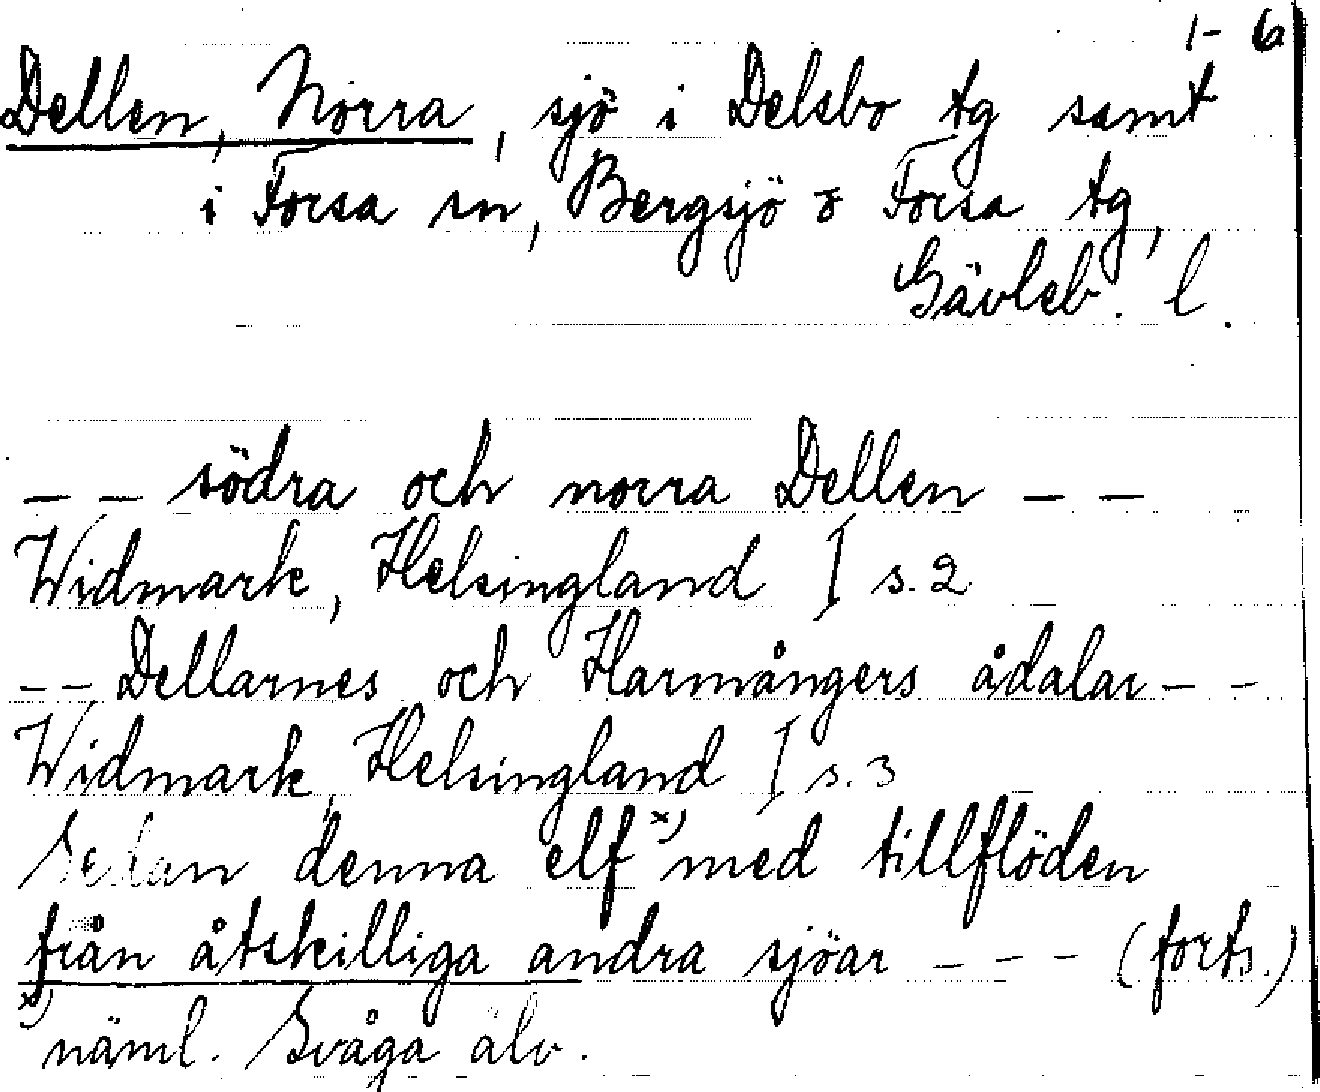 1-6
Dellen, Norra, sjö i Delsbo tg samt
i Forsa sn, Bergsjö o Forsa tg,
Gävleb. l.
-- södra och norra Dellen --
Widmark, Helsingland I s. 2
-- Dellarnes och Harmångers ådalar --
Widmark, Helsingland I s. 3
Sedan denna elf x) med tillflöden
från åtskilliga andra sjöar --- (forts.)
x) näml. Svåga älv.